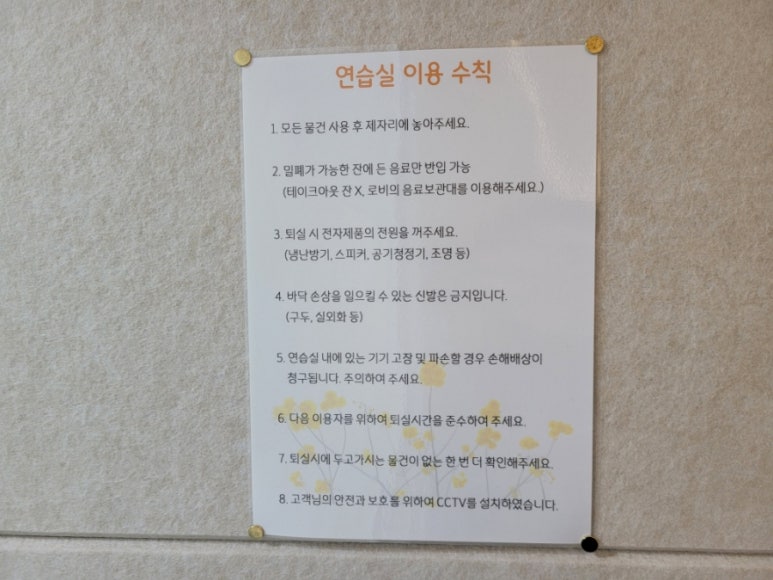 연습실 이용 수칙
1. 모든 물건 사용 후 제자리에 놓아주세요.
2. 밀폐가 가능한 잔에 든 음료만 반입 가능
(테이크아웃 잔 X, 로비의 음료보관대를 이용해주세요.)
3. 퇴실 시 전자제품의 전원을 꺼주세요.
(냉난방기, 스피커, 공기청정기, 조명 등)
4. 바닥 손상을 일으킬 수 있는 신발은 금지입니다.
(구두, 실외화 등)
5. 연습실 내에 있는 기기 고장 및 파손할 경우 손해배상이
청구됩니다. 주의하여 주세요.
6. 다음 이용자를 위하여 퇴실시간을 준수하여 주세요.
7. 퇴실시에 두고가시는 물건이 없는 한 번 더 확인해주세요.
8. 고객님의 안전과 보호를 위하여 CCTV를 설치하였습니다.